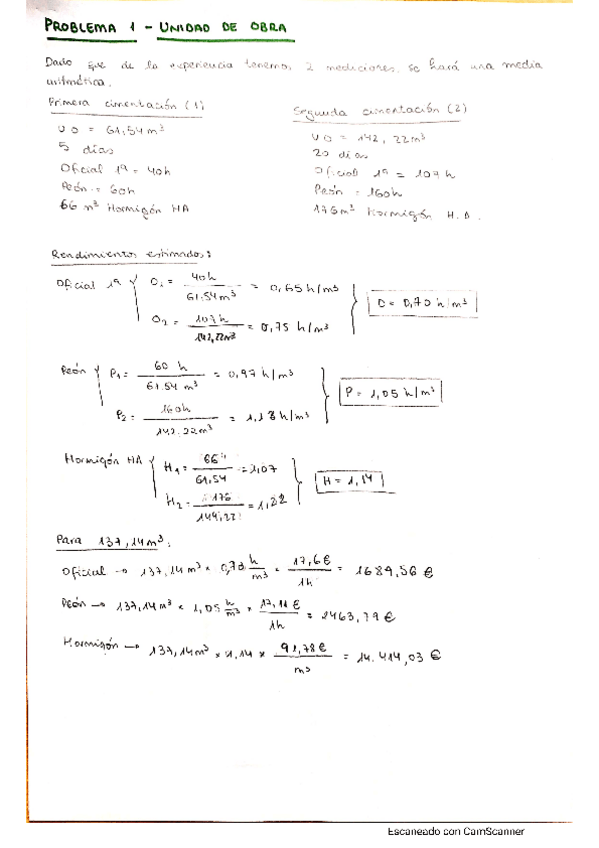 PROBLEMA 1 - UNIDAD DE OBRA
Dado que de la experiencia tenemos 2 mediciones, se hará una media
aritmética.
Primera cimentación (1)
UO = 61,54 m³
5 días
Oficial 1ª = 40h
Peón = 60h
66 m³ Hormigón HA
Segunda cimentación (2)
UO = 142,22m³
20 días
Oficial 1ª = 107h
Peón = 160h
176m³ Hormigón H.A.
Rendimientos estimados:
Oficial 1ª { O₁ = 40h / 61.54m³ = 0,65 h/m³
O₂ = 107h / 142,22m³ = 0,75 h/m³ } O = 0,70 h/m³
Peón { P₁ = 60 h / 61.54 m³ = 0,97 h/m³
P₂ = 160h / 142.22m³ = 1,13 h/m³ } P = 1,05 h/m³
Hormigón HA { H₁ = 66 / 61,54 = 1,07
H₂ = 176 / 144,22 = 1,22 } H = 1,14
Para 137,14m³:
Oficial → 137,14m³ × 0,70 h/m³ × 17,6€ / 1h = 1689,56 €
Peón → 137,14m³ × 1,05 h/m³ × 17,11€ / 1h = 2463,79 €
Hormigón → 137,14m³ × 1,14 × 91,78€ / m³ = 14.414,03 €
Escaneado con CamScanner